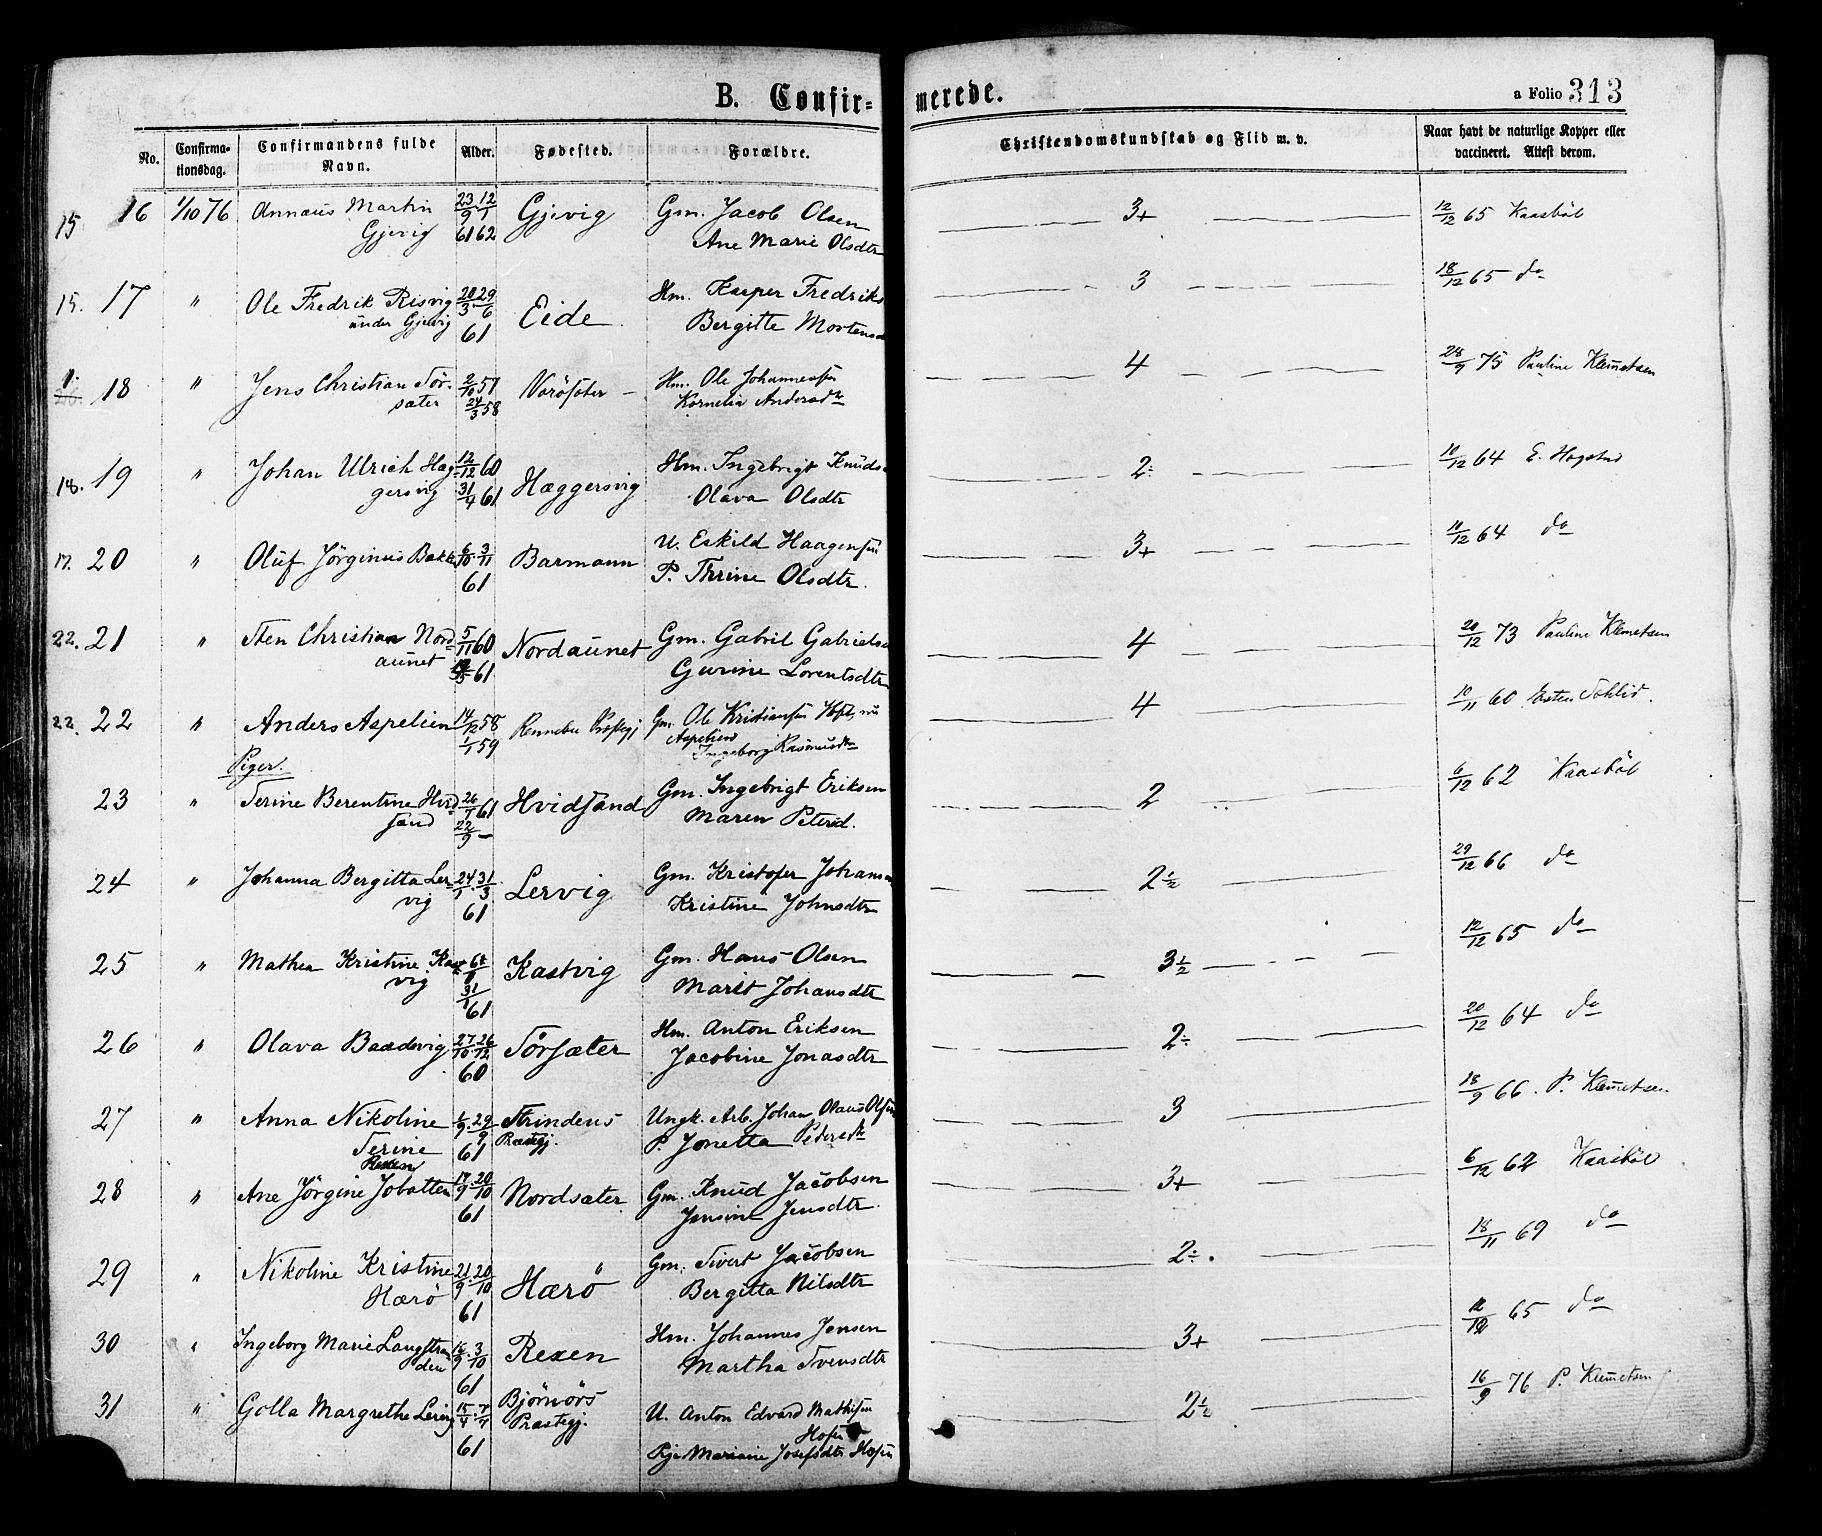 B. Confir=
merede.
a Folio 313
No.
Confirma-
tionsdag.
Confirmandens fulde
Navn.
Alder.
Fødested.
Forældre.
Christendomskundskab og Flid m. v.
Naar havt de naturlige Kopper eller
vaccineret. Attest derom.
15 16 1/10 76 Annæus Martin 23/9 12/1 Gjevig Gm. Jacob Olsen 3+ 12/12 65 Kaasböl
Gjevig 61 62 Ane Marie Olsdtr
15. 17 " Ole Fredrik Risvig 29/6 Eide Hm. Kasper Fredriks 3 18/12 65 do
under Gjevig 61 Bergitte Mortensd
1. 18 " Jens Christian Tör- 2/10 57 Hm. Ole Johannessen 4 28/9 75 Pauline Klemetsen
sæter 24/3 58 Kornelia Andersdtr
18. 19 " Johan Ulrich Hæg- 12/12 60 Hæggersvig Hm. Ingebrigt Knuds 2÷ 10/12 64 E. Hogstad
gersvig 31/4 61 Olava Olsdtr
17. 20 " Oluf Jörginus Bakk 6/10 3/11 Barmann U. Eskild Haagensen 3+ 11/12 64 do
61 P. Thrine Olsdtr.
22. 21 " Sten Christian Nord= 5/11 60 Nordaunet Gm. Gabril Gabrielse 4 20/12 73 Pauline Klemetsen
aunet 61 Gurine Lorentsdtr
22. 22 " Anders Aspelien 14/12 58 Rennebu Præstegj Gm. Ole Kristiansen nu 4 10/11 60
1/1 59 Aspelien
Ingeborg Rasmusdtr
Piger.
23 " Serine Berentine Hvid= 26/1 61 Hvidsand Gm. Ingebrigt Eriksen 2 6/12 62 Kaasböl
sand 22/9 – Maren Petersd.
24 " Johanna Bergitta Ler= 24/1 31/3 Lervig Gm. Kristofer Johanse 2½ 29/12 66 do
vig 61 Kristine Johnsdtr
25 " Mathea Kristine Kast Kastvig Gm. Hans Olsen 3½ 12/12 65 do
vig 31/1 61 Marit Johansdtr
26 " Olava Baadsvig 27/10 26/12 Törsæter Hm. Anton Eriksen 2÷ 20/12 64 do
60 Jacobine Jonasdtr
27 " Anna Nikoline 29/9 Strindens Ungk. Arb. Johan Olaus Olsen 3 18/9 66. P. Klemetsen
Serine 61 Præstegj. P. Jonetta Pedersdtr
Rexen
28 " Ane Jörgine Jobotten 17/9 20/10 Nordsæter Gm. Knud Jacobsen 3+ 6/12 62 Kaasböl
61 Jensine Jensdtr.
29 " Nikoline Kristine 21/9 20/10 Hærö Gm. Sivert Jacobsen 2÷. 18/11 69 do
Hærö 61 Bergitta Nilsdtr
30 " Ingeborg Marie Langstran 3/10 Rexen Hm. Johannes Jensen 3+ 65 do
den 61 Martha Svensdtr
31 " Golla Margrethe Lervig 15/4 7/7 Bjørnörs U. Anton Edvard Mathisen 2½ 16/9 76 P. Klemetsen
61 Præstegj. Hofsn
Pige Mariane Josefsdtr Hofsn